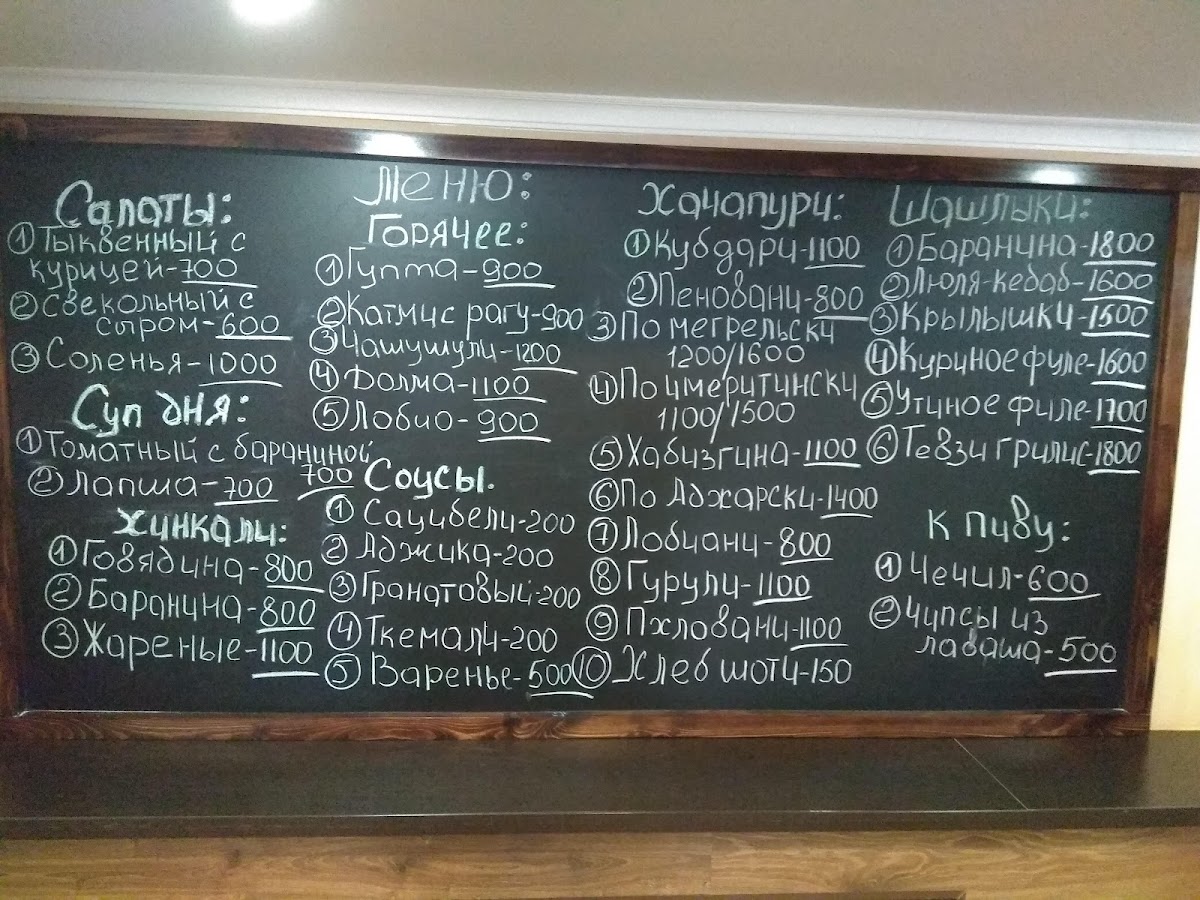 Меню:
Салаты:
① Тыквенный с
курицей-700
② Свекольный с
сыром-600
③ Соленья-1000
Суп дня:
① Томатный с бараниной
700
② Лапша-700
Хинкали:
① Говядина-800
② Баранина-800
③ Жареные-1100
Горячее:
① Гупта-900
② Катмис рагу-900
③ Чашушули-1200
④ Долма-1100
⑤ Лобио-900
Соусы.
① Сацибели-200
② Аджика-200
③ Гранатовый-200
④ Ткемали-200
⑤ Варенье-500
Хачапури:
① Кубдари-1100
② Пеновани-800
③ По мегрельски
1200/1600
④ По имеритински
1100/1500
⑤ Хабизгина-1100
⑥ По Аджарски-1400
⑦ Лобиани-800
⑧ Гурули-1100
⑨ Пхловани-1100
⑩ Хлеб шоти-150
Шашлыки:
① Баранина-1800
② Люля-кебаб-1600
③ Крылышки-1500
④ Куриное филе-1600
⑤ Утиное филе-1700
⑥ Тевзи грилис-1800
К пиву:
① Чечил-600
② Чипсы из
лаваша-500